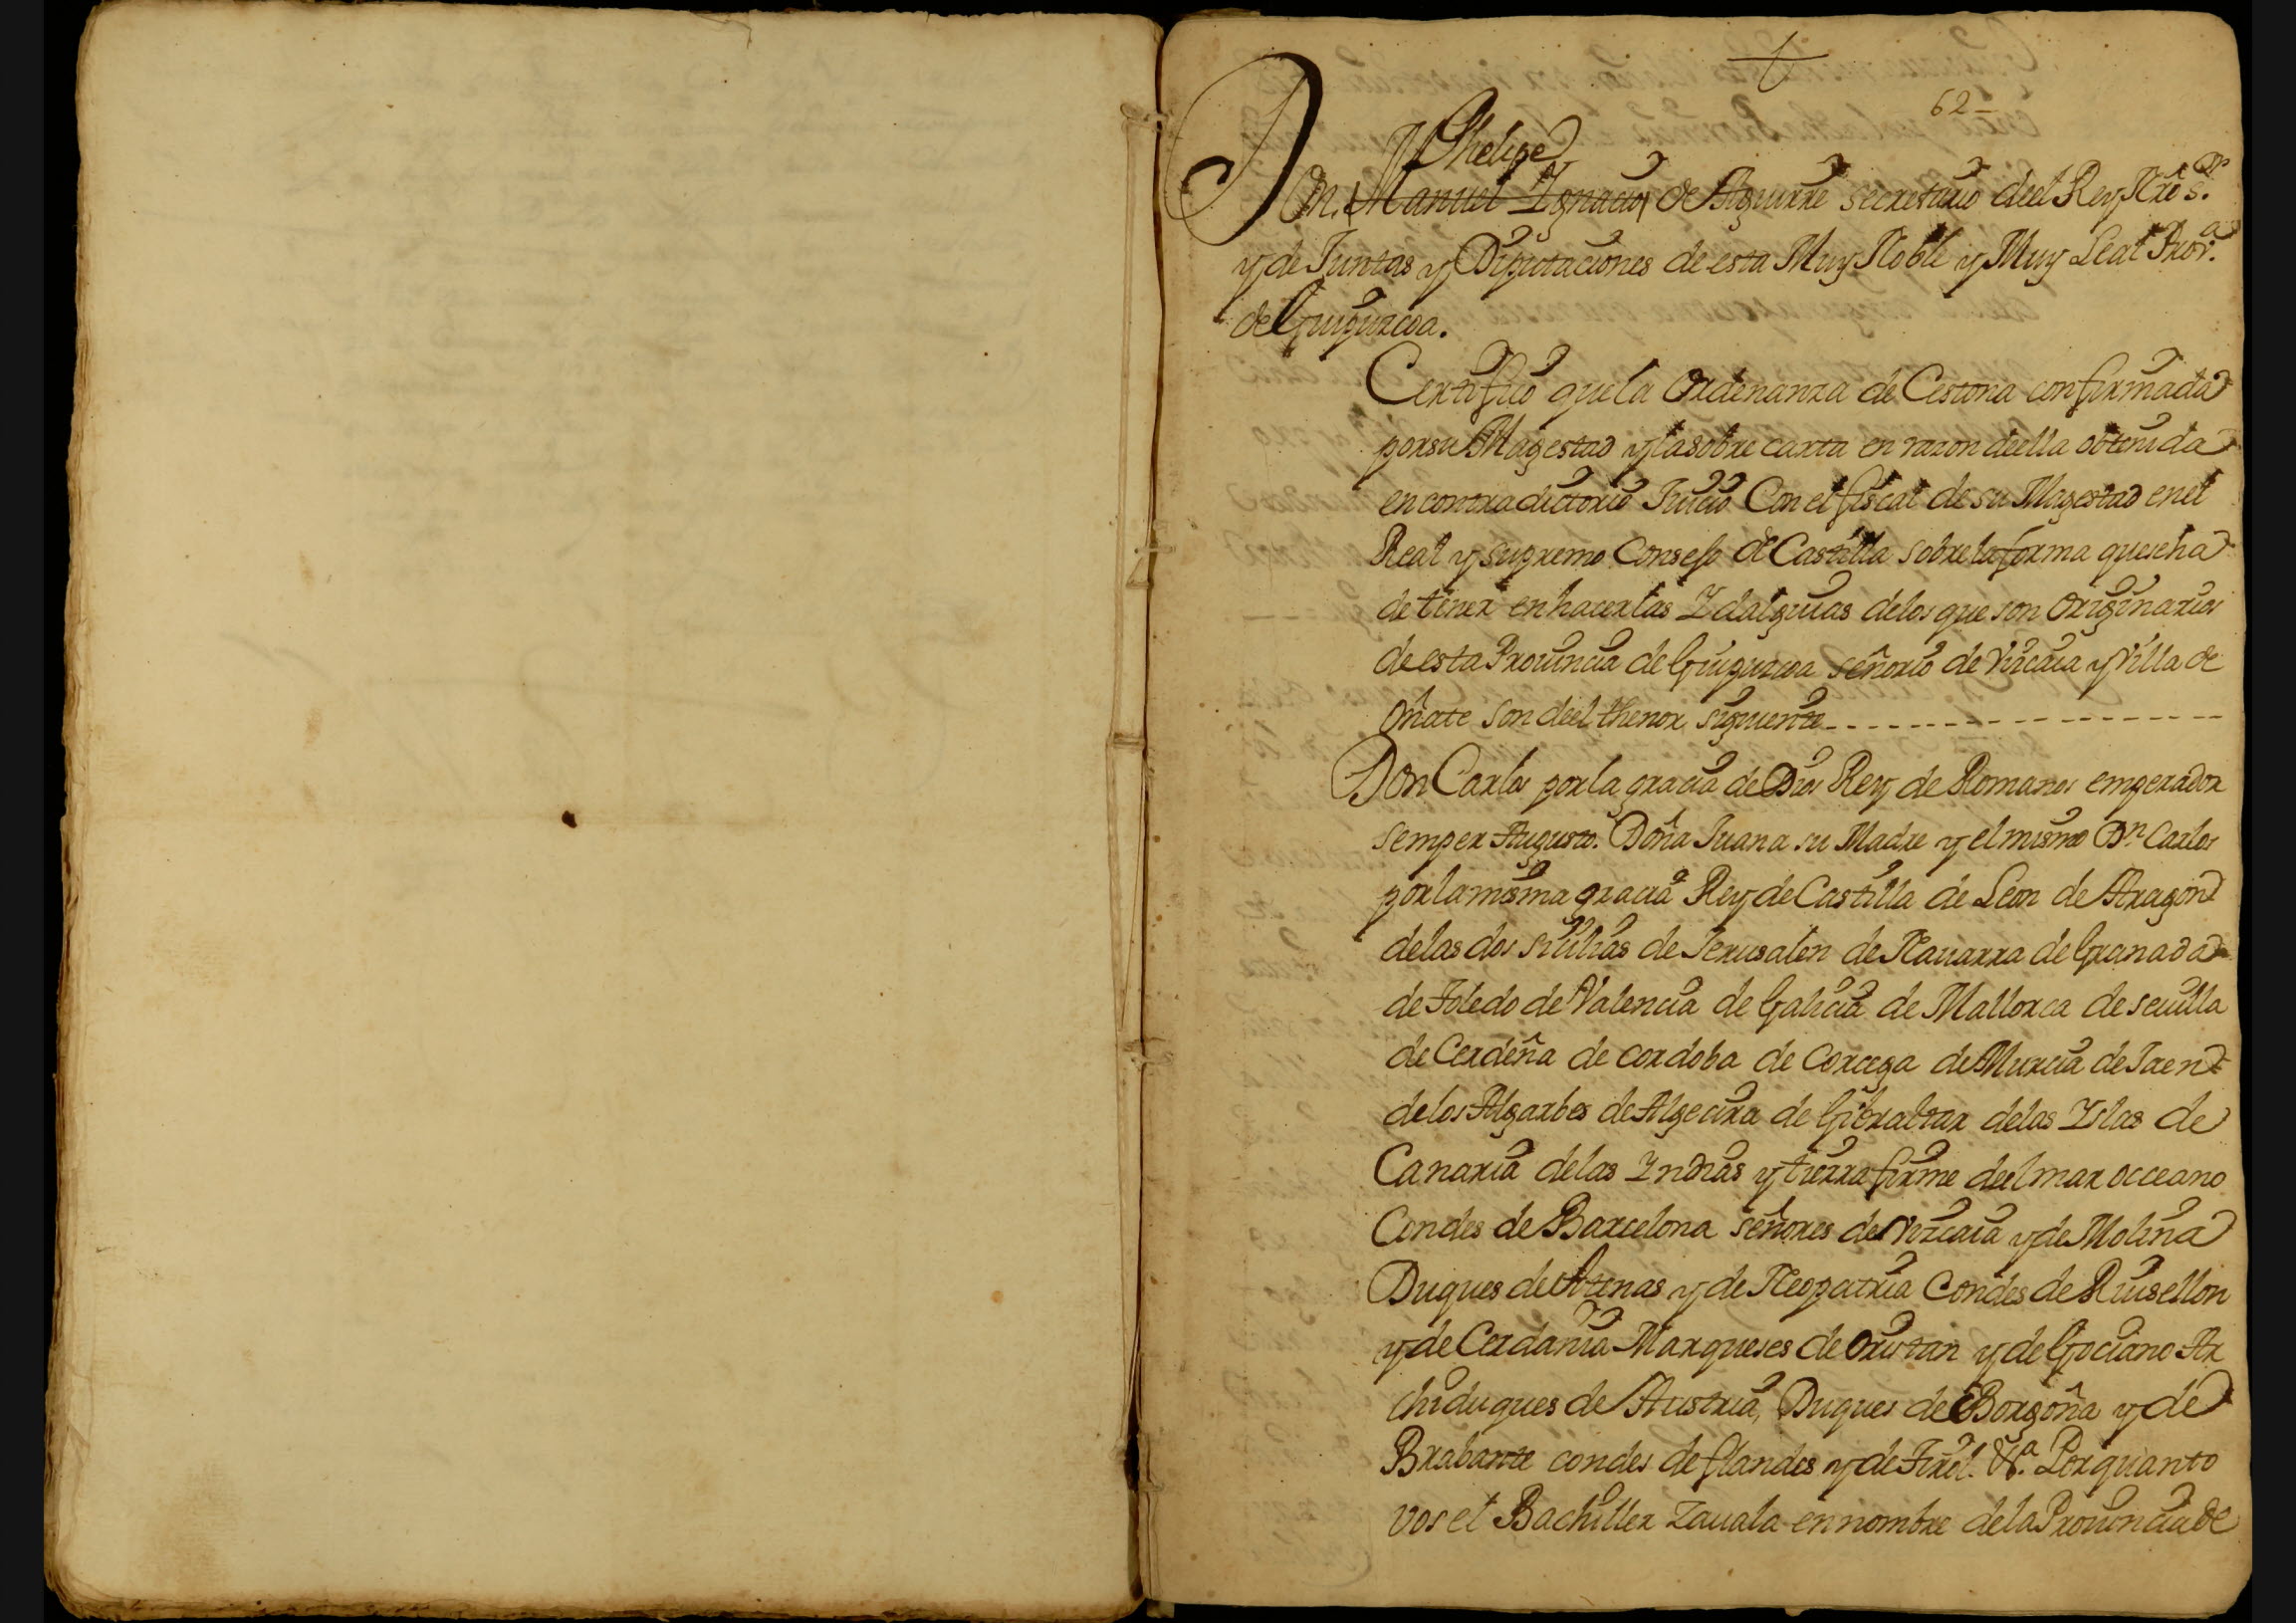 62
Phelipe
Don. Manuel Ygnacio de Aguirre secretario deel Rey Nrõ s.or
y de Juntas y Diputaciones de esta Muy Noble y Muy Leal Prov.a
de Guipuzcoa.
Certifico que la Ordenanza de Cestona confirmada
por su Magestad y la sobre carta en razon deella obtenida
en contradictorio Juicio Con el fiscal de su Magestad en el
Real y supremo Consejo de Castilla sobre la forma que se ha
de tener en hacer las Ydalguias de los que son Originarios
de esta Prouincia de Guipuzcoa señorio de Vizcaia y Villa de
Oñate son deel thenor siguiente
Don Carlos por la gracia de Dios Rey de Romanos emperador
semper Augusto. Doña Juana su Madre y el mismo Dn Carlos
por la misma gracia Rey de Castilla de Leon de Aragon
de las dos Sicilias de Jerusalen de Nauarra de Granada
de Toledo de Valencia de Galicia de Mallorca de seuilla
de Cerdeña de cordoba de Corcega de Murcia de Jaen
de los Algarbes de Algecira de Gibraltar de las Yslas de
Canaria de las Yndias y tierra firme deel mar occeano
Condes de Barcelona señores de Vizcaia y de Molina
Duques de Atenas y de Neopatria Condes de Ruisellon
y de Cerdania Marqueses de Oristan y de Gociano Ar
chiduques de Austria, Duques de Borgoña y de
Brabante condes de flandes y de Tirol. &.a Por quanto
vos el Bachiller Zauala en nombre de la Prouincia de